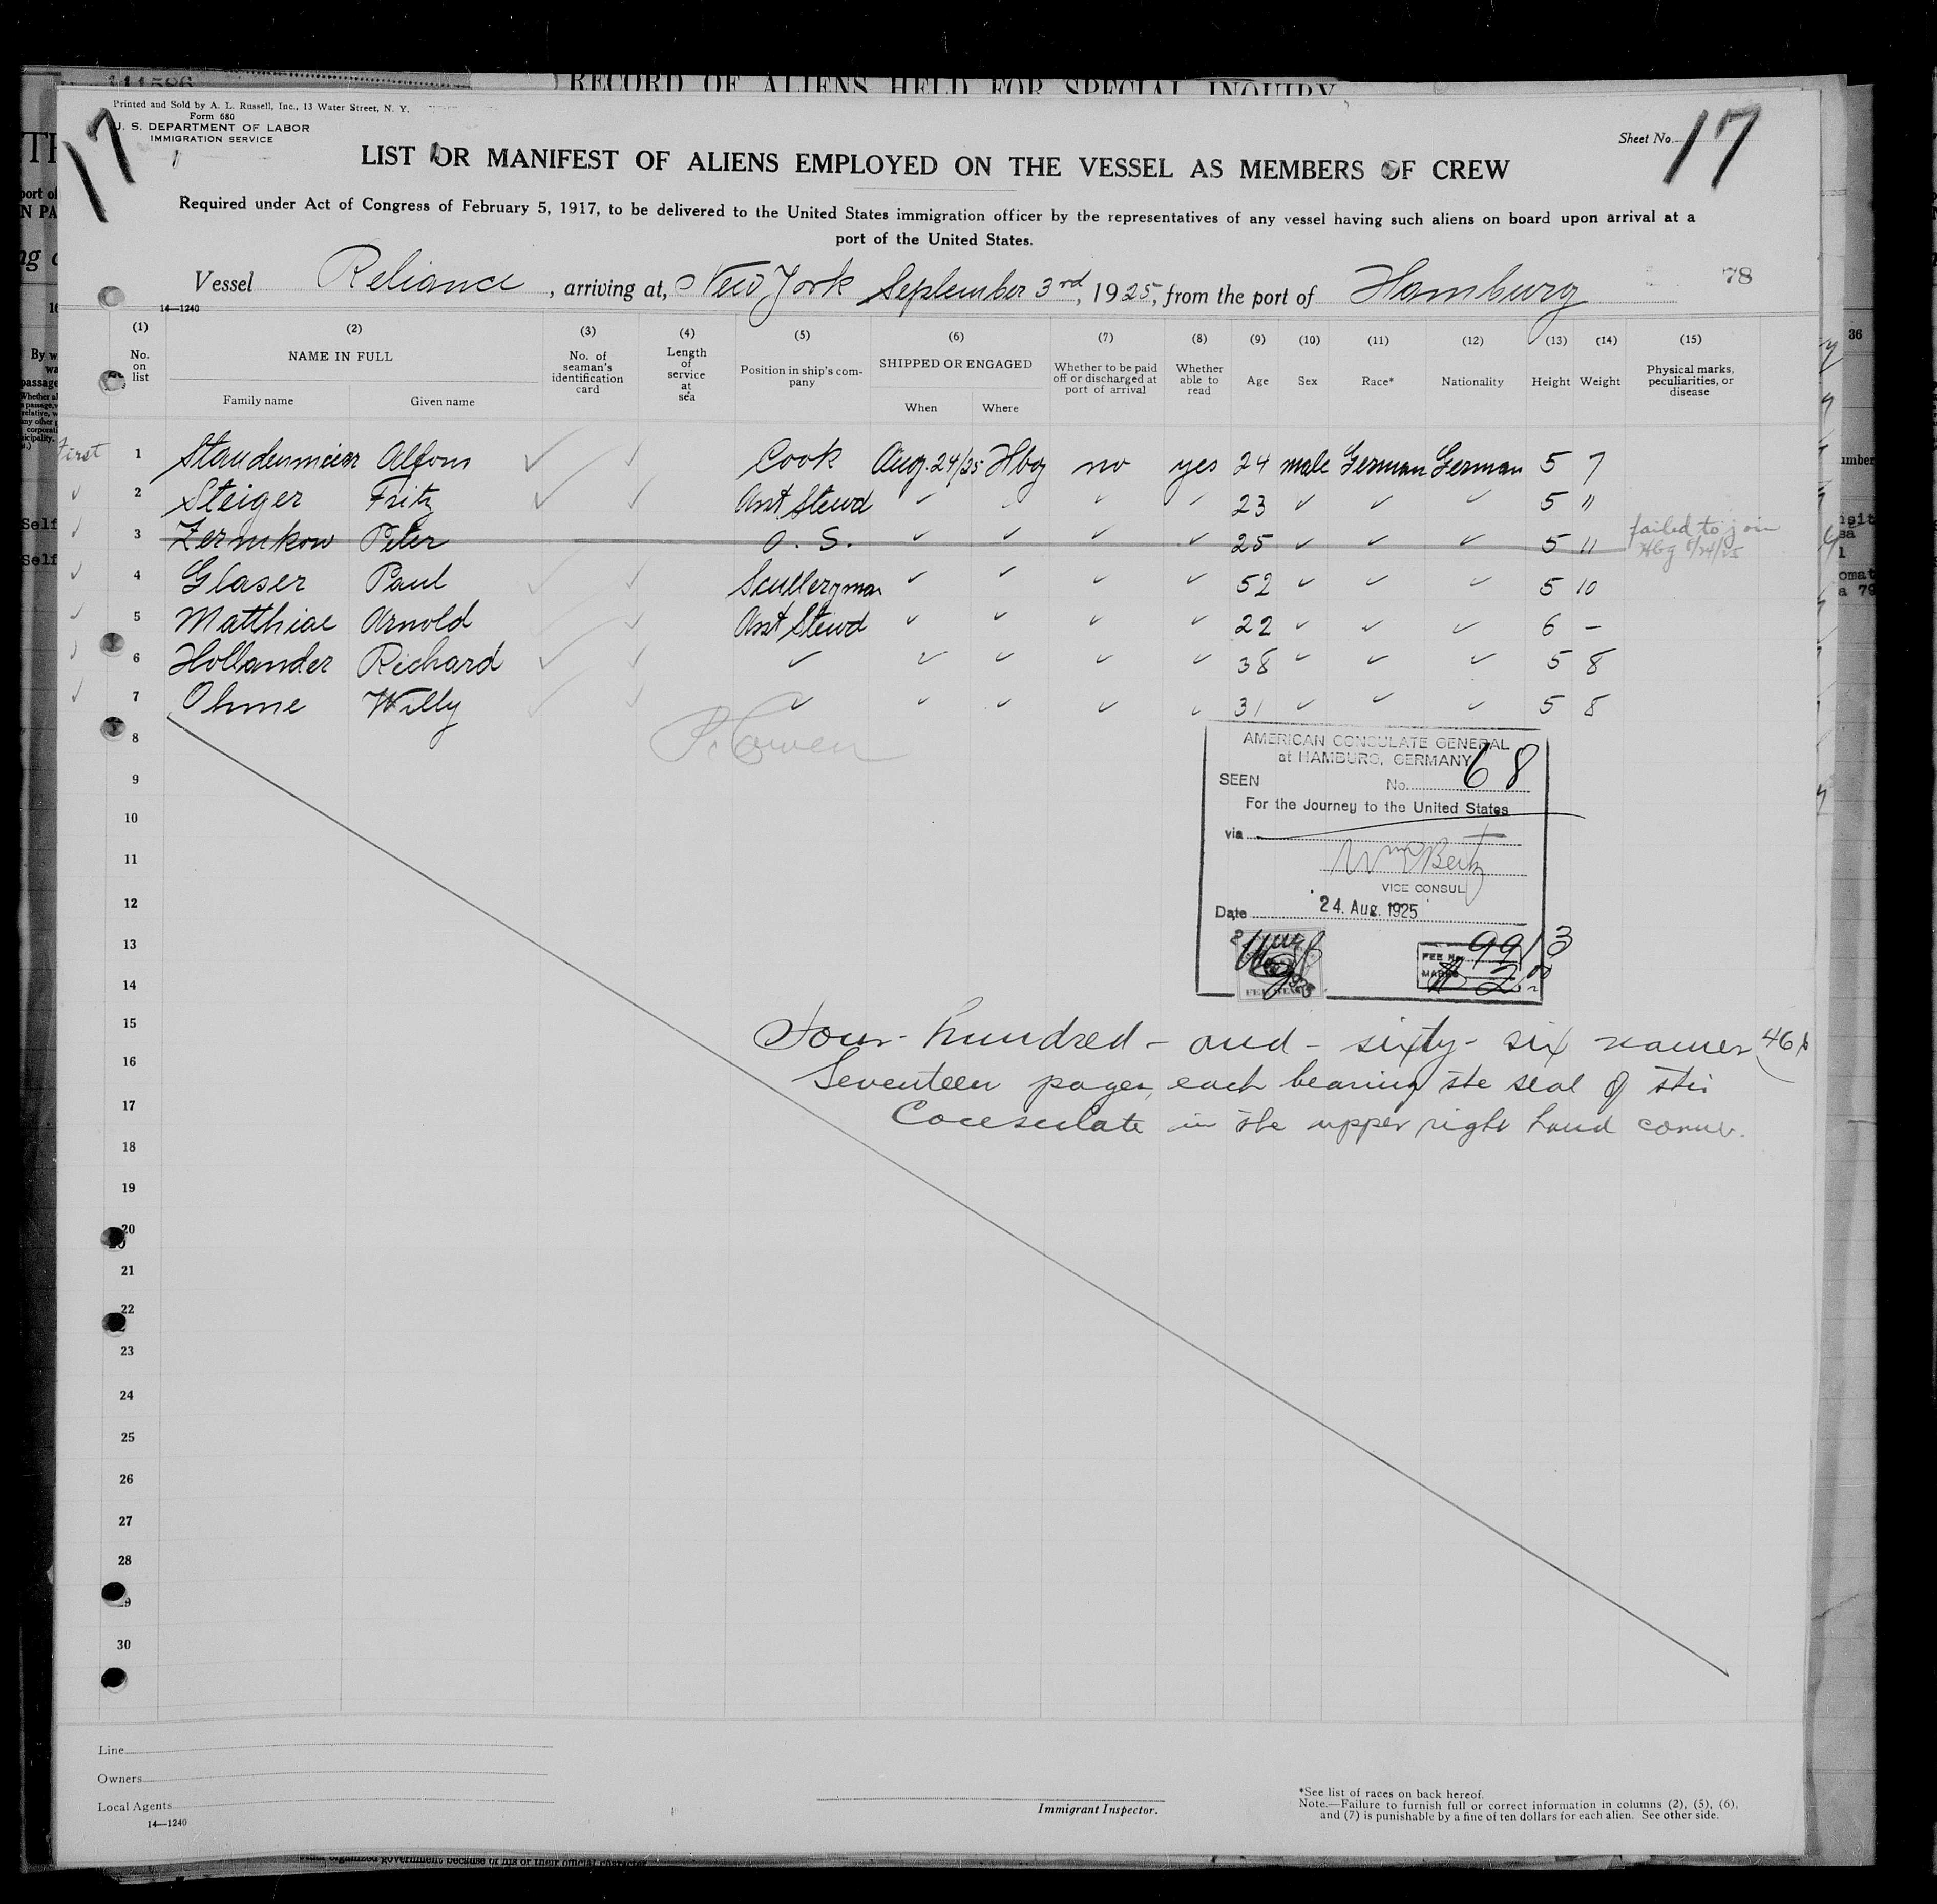 111586
RECORD OF ALIENS HELD FOR SPECIAL INQUIRY
Printed and Sold by A. L. Russell, Inc., 13 Water Street, N. Y.
Form 680
U. S. DEPARTMENT OF LABOR
IMMIGRATION SERVICE
17
Sheet No. 17
LIST OR MANIFEST OF ALIENS EMPLOYED ON THE VESSEL AS MEMBERS OF CREW
Required under Act of Congress of February 5, 1917, to be delivered to the United States immigration officer by the representatives of any vessel having such aliens on board upon arrival at a
port of the United States.
78
Vessel Reliance, arriving at, New York September 3rd, 1925, from the port of Hamburg
14—1240
(1) (2) (3) (4) (5) (6) (7) (8) (9) (10) (11) (12) (13) (14) (15)
No. on list
NAME IN FULL
Family name Given name
No. of seaman's identification card
Length of service at sea
Position in ship's company
SHIPPED OR ENGAGED
When Where
Whether to be paid off or discharged at port of arrival
Whether able to read
Age Sex Race* Nationality Height Weight
Physical marks, peculiarities, or disease
First 1 Staudenmeier Alfons ✓ ✓ Cook Aug. 24/25 Hbg no yes 24 male German German 5 7
✓ 2 Steiger Fritz ✓ ✓ Asst Stewd ✓ ✓ ✓ ✓ 23 ✓ ✓ ✓ 5 "
✓ 3 Zernikow Peter O. S. ✓ ✓ ✓ ✓ 25 ✓ ✓ ✓ 5 11 failed to join
Hbg 8/24/25
✓ 4 Glaser Paul ✓ ✓ Sculleryman ✓ ✓ ✓ ✓ 52 ✓ ✓ ✓ 5 10
✓ 5 Matthiae Arnold ✓ ✓ Asst Stewd ✓ ✓ ✓ ✓ 22 ✓ ✓ ✓ 6 –
✓ 6 Hollander Richard ✓ ✓ ✓ ✓ ✓ ✓ ✓ 38 ✓ ✓ ✓ 5 8
✓ 7 Ohme Willy ✓ ✓ ✓ ✓ ✓ ✓ ✓ 31 ✓ ✓ ✓ 5 8
8
9
10
11
12
13
14
15
16
17
18
19
20
21
22
23
24
25
26
27
28
29
30
AMERICAN CONSULATE GENERAL
at HAMBURG, GERMANY
SEEN No. 68
For the Journey to the United States
via
VICE CONSUL
Date 24. Aug. 1925
FEE No. 9913
MARKS $ 2.00
Four-hundred-and-sixty-six names (466
Seventeen pages, each bearing the seal of this
Consulate in the upper right hand corner.
Line
Owners
Local Agents
14—1240
Immigrant Inspector.
*See list of races on back hereof.
Note.—Failure to furnish full or correct information in columns (2), (5), (6),
and (7) is punishable by a fine of ten dollars for each alien. See other side.